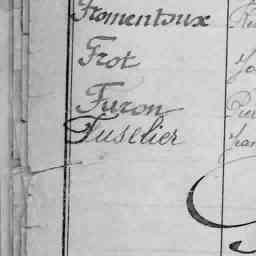 Fromentoux
Frot
Furon
Fuselier